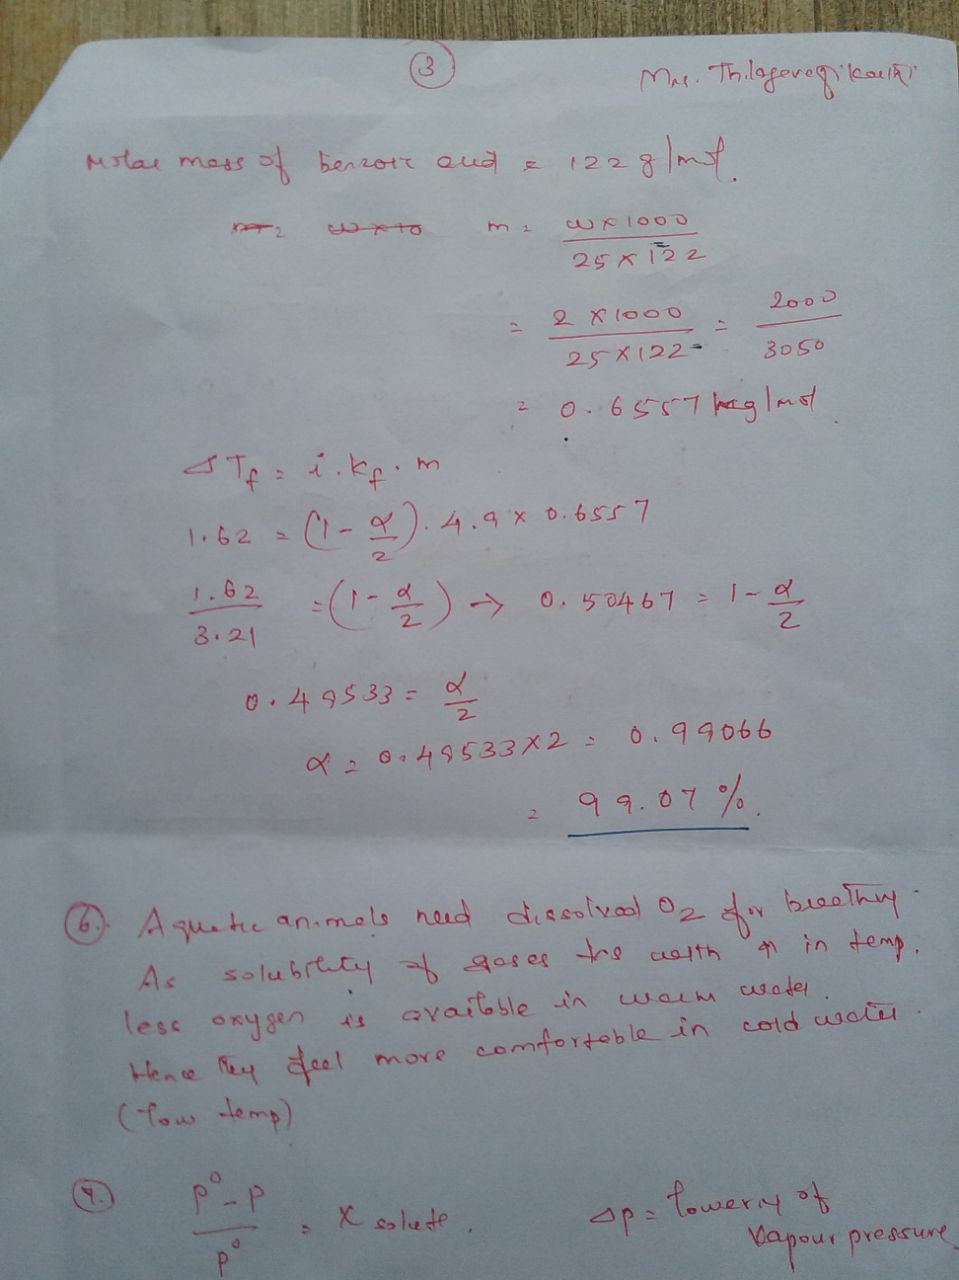 3
Mrs. Thilagavathi Karthi
Molar mass of benzoic acid = 122 g/mol.
m = w × 10 m = w × 1000 / 25 × 122
= 2 × 1000 / 25 × 122 = 2000 / 3050
= 0.6557 kg/mol
ΔTf = i . kf . m
1.62 = (1 - α/2) . 4.9 × 0.6557
1.62 / 3.21 = (1 - α/2) → 0.50467 = 1 - α/2
0.49533 = α/2
α = 0.49533 × 2 = 0.99066
= 99.07 %.
6. Aquatic animals need dissolved O2 for breathing.
As solubility of gases ↓es with ↑ in temp.
less oxygen is available in warm water.
Hence they feel more comfortable in cold water.
(low temp)
7. p° - p / p° = x solute. Δp = lowering of
vapour pressure